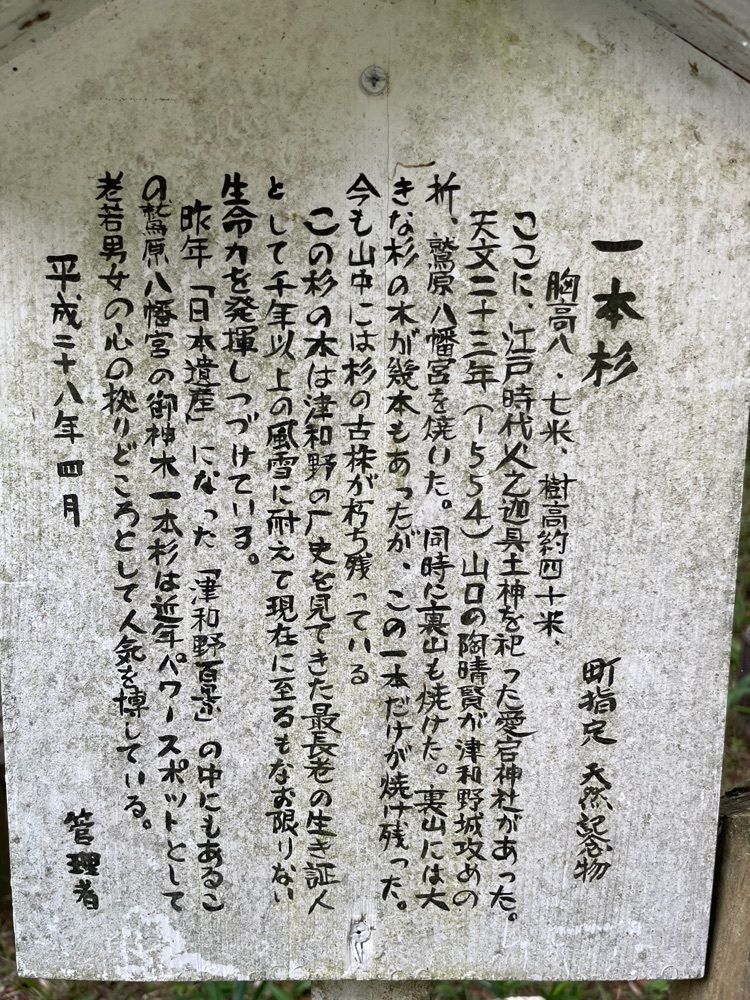 一本杉
町指定 天然記念物
胸高八・七米、樹高約四十米、
ここに、江戸時代人之迦具土神を祀った愛宕神社があった。
天文二十三年(1554)山口の陶晴賢が津和野城攻めの
折、鷲原八幡宮を焼いた。同時に裏山も焼けた。裏山には大
きな杉の木が幾本もあったが、この一本だけが焼け残った。
今も山中には杉の古株が朽ち残っている
この杉の木は津和野の厂史を見てきた最長老の生き証人
として千年以上の風雪に耐えて現在に至るもなお限りない
生命力を発揮しつづけている。
昨年「日本遺産」になった「津和野百景」の中にもあるこ
の鷲原八幡宮の御神木一本杉は近年パワースポットとして
老若男女の心の拠りどころとして人気を博している。
平成二十八年四月
管理者